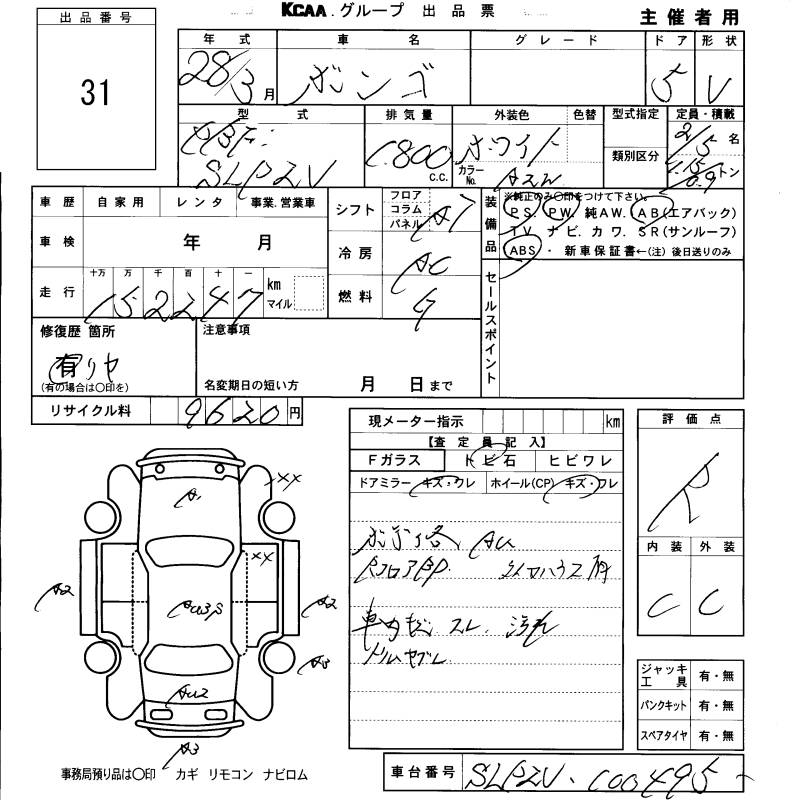 KCAA.グループ 出品票
主催者用
出品番号
31
年式 車名 グレード ドア 形状
28/3月 ボンゴ 5 V
型式 排気量 外装色 色替 型式指定 定員・積載
SLP2V 1,800 c.c. ホワイト 2/5名
カラーNo. 類別区分 1.15/0.9トン
車歴 自家用 レンタ 事業.営業車
シフト フロア コラム パネル A7
装備品 ※純正のみ〇印をつけて下さい。
PS. PW. 純AW. AB(エアバック)
TV. ナビ. カワ. SR(サンルーフ)
ABS・新車保証書←(注)後日送りのみ
車検 年 月
冷房 AC
走行 十万 万 千 百 十 一 km マイル
152247
燃料 G
セールスポイント
修復歴 箇所
有 リヤ
(有の場合は〇印を)
注意事項
名変期日の短い方 月 日まで
リサイクル料 9620円
現メーター指示 km
【査定員記入】
Fガラス トビ石 ヒビワレ
ドアミラー キズ・ワレ ホイール(CP) キズ・ワレ
AU
車内 スレ 汚れ
評価点
R
内装 外装
C C
A1
XX
XX
A2
AU3P
A2
A3
AU2
A3
ジャッキ工具 有・無
パンクキット 有・無
スペアタイヤ 有・無
事務局預り品は〇印 カギ リモコン ナビロム
車台番号 SLP2V-100495